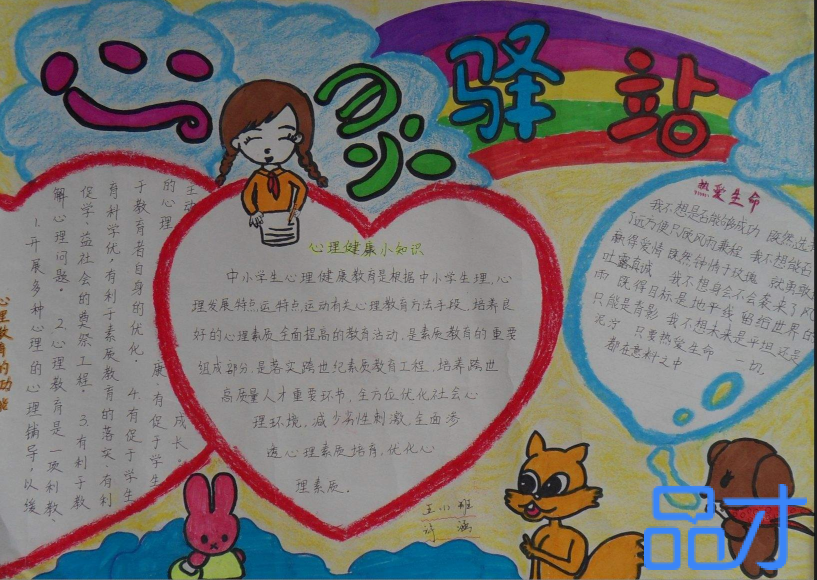 心灵驿站
心理健康小知识
中小学生心理健康教育是根据中小学生理,心
理发展特点运,特点,运动有关心理教育方法手段,培养良
好的心理素质,全面提高的教育活动,是素质教育的重要
组成部分,是落实跨世纪素质教育工程,培养跨世
高质量人才重要环节,全方位优化社会心
理环境,减少劣性刺激,全面渗
透心理素质培育,优化心
理素质。
心理教育的功能
1.开展多种心理的心理辅导,以缓
解心理问题。2.心理教育是一项利教、
促学、益社会的奠祭工程。3.有利于教
育科学优,有利于素质教育的落实,有利
于教育者自身的优化。4.有促于学生
的心理
康,有促于学生
主动
成长。
热爱生命
我不想是否能够成功 既然选
了远方便只顾风雨兼程 我不想能否
赢得爱情 既然钟情于玫瑰 就勇敢
吐露真诚 我不想身会不会袭来了风
雨 既得目标是地平线 留给世界的
只能是背影 我不想未来是平坦还是
泥泞 只要热爱生命 一切,
都在意料之中
五小班
许涵
品才